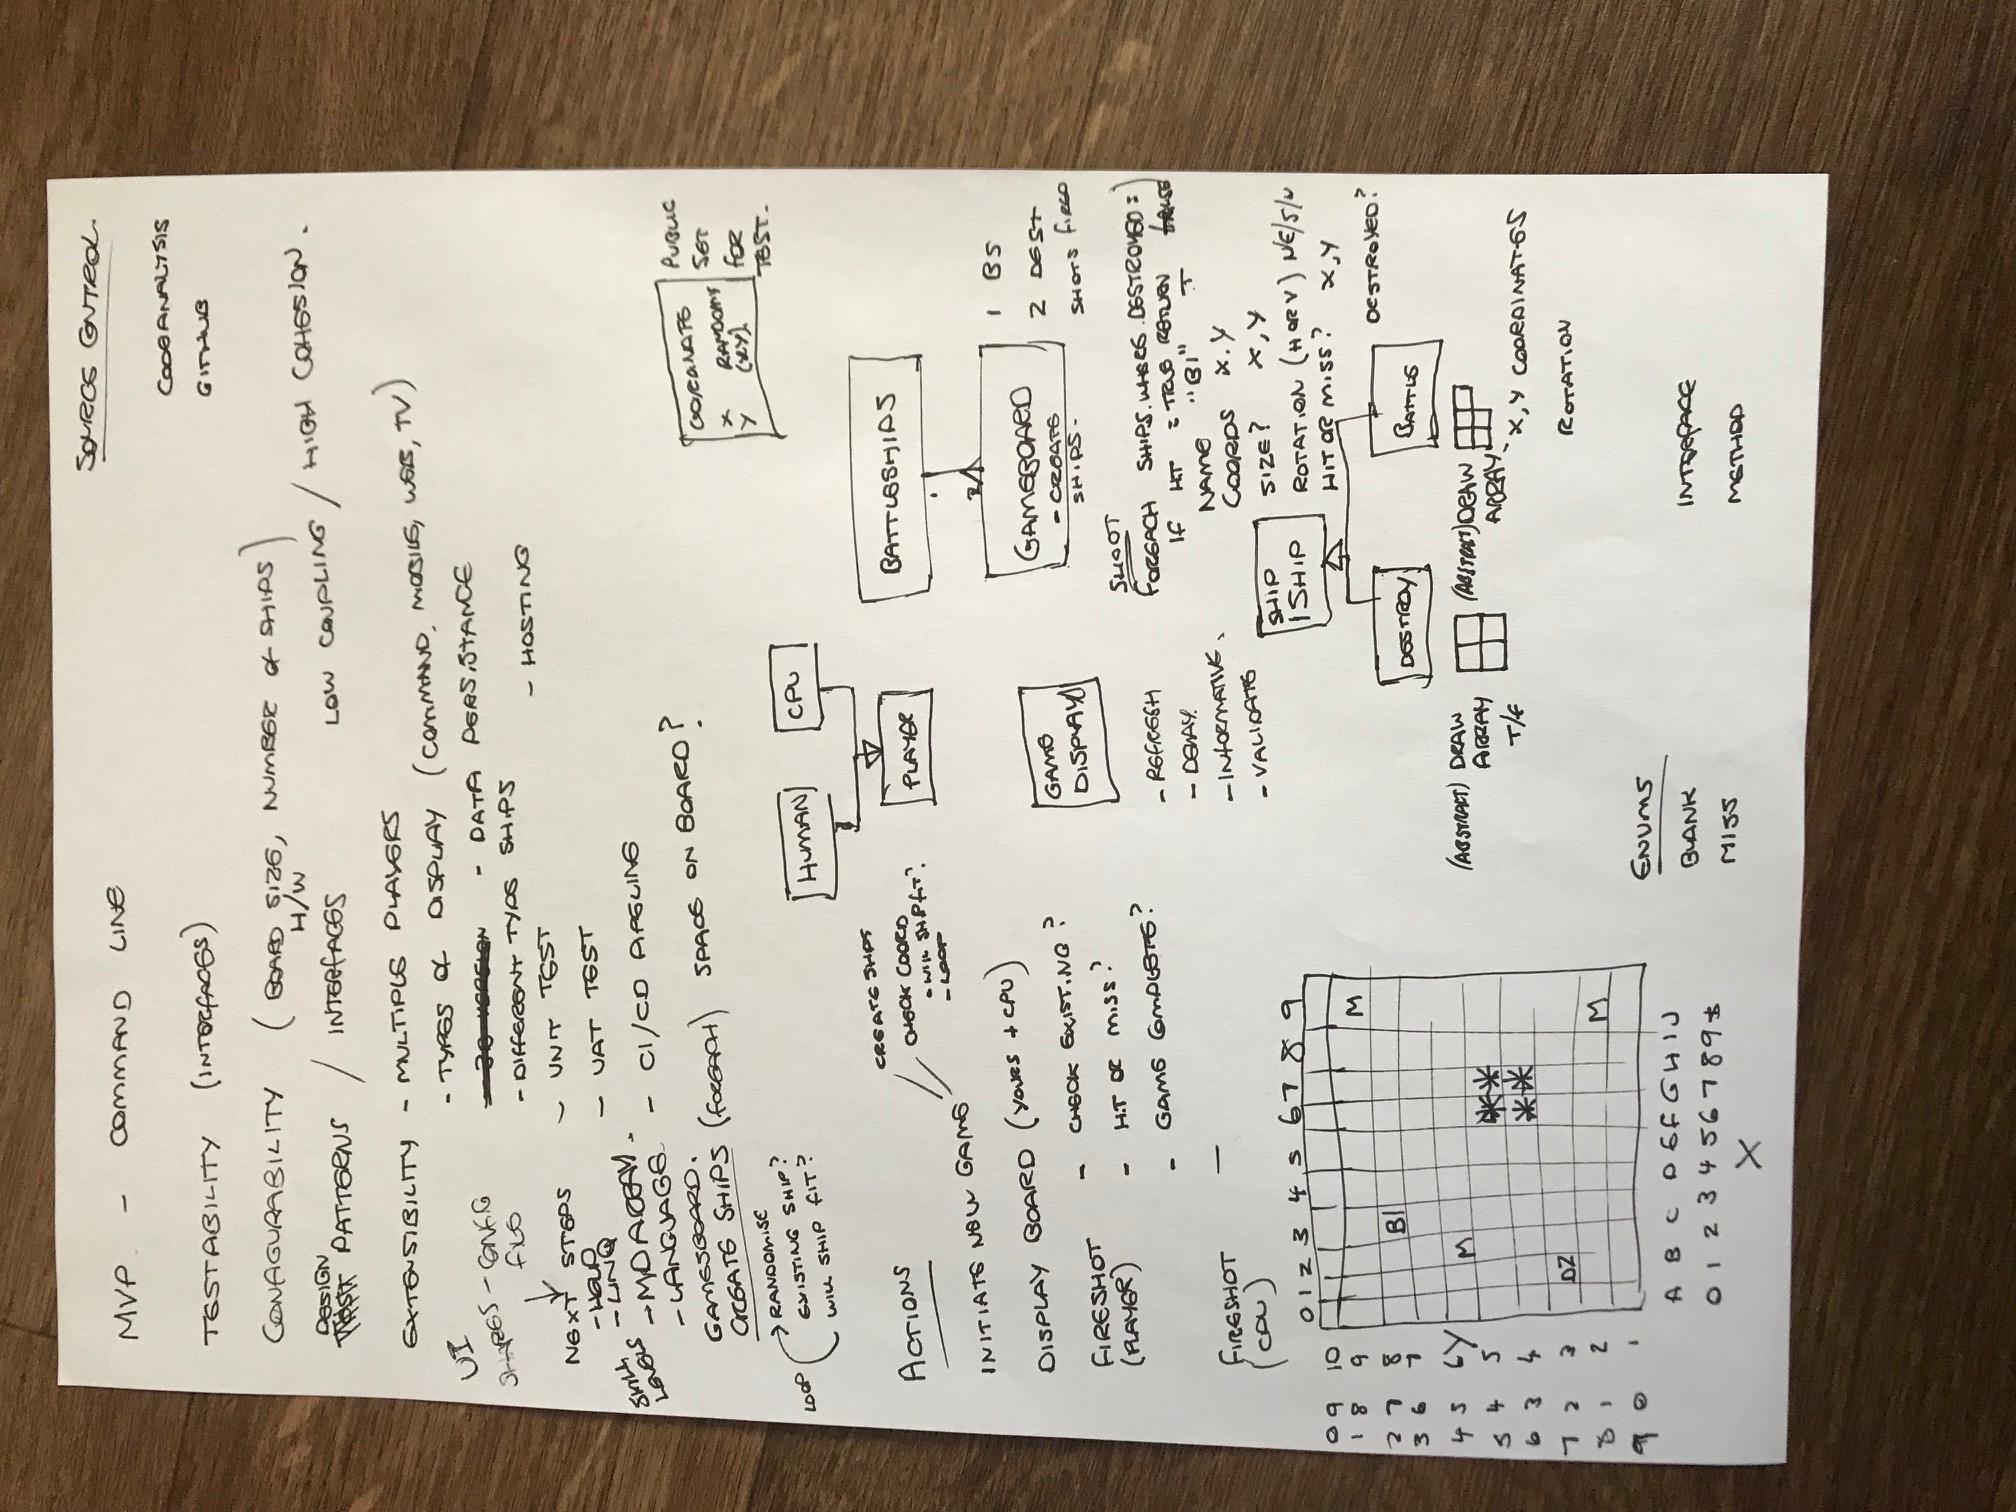 SOURCE CONTROL
MVP - COMMAND LINE
CODEANALYSIS
GITHUB
TESTABILITY (INTERFACES)
CONFIGURABILITY (BOARD SIZE, NUMBER OF SHIPS)
H/W
DESIGN
PATTERNS / INTERFACES
LOW COUPLING / HIGH COHESION.
EXTENSIBILITY - MULTIPLE PLAYERS
- TYPES OF DISPLAY (COMMAND, MOBILE, WEB, TV)
- DATA PERSISTANCE
- DIFFERENT TYPE SHIPS
- HOSTING
UI
SHAPES - CONFIG
FILE
NEXT STEPS - UNIT TEST
- HELP
- LINQ - UAT TEST
SKILL
LEVELS
- MD ARRAY.
- LANGUAGE - CI/CD PIPELINE
GAMESBOARD.
CREATE SHIPS (FOREACH) SPACE ON BOARD?
LOOP
RANDOMISE
EXISTING SHIP?
WILL SHIP FIT?
COORDINATE
X RANDOM
Y (X,Y).
PUBLIC
SET
FOR
TEST.
HUMAN
CPU
PLAYER
BATTLESHIPS
1
2
GAMEBOARD
- CREATE
SHIPS.
1 BS
2 DEST
SHOTS FIRED
ACTIONS
CREATE SHIPS
CHECK COORD
- WILL SHIP FIT?
- LOOP
INITIATE NEW GAME
DISPLAY BOARD (YOURS + CPU)
FIRESHOT
(PLAYER)
- CHECK EXISTING?
- HIT OR MISS?
- GAME COMPLETE?
FIRESHOT -
(CPU)
GAME
DISPLAY
- REFRESH
- DELAY.
- INFORMATIVE.
- VALIDATE
SHOOT
FOREACH SHIPS.WHERE.DESTROYED =
IF HIT = TRUE RETURN
T
NAME "B1"
COORDS X.Y
SIZE? X,Y
ROTATION (H OR V) N/E/S/W
HIT OR MISS? X,Y
DESTROYED?
SHIP
ISHIP
DESTROY
BATTLE
(ABSTRACT) DRAW
ARRAY
T/F
(ABSTRACT) DRAW
ARRAY
- X,Y COORDINATES
ROTATION
0 1 2 3 4 5 6 7 8 9
0 9 10
1 8 9 M
2 7 8 B1
3 6 7
4 5 6 Y M
5 4 5
6 3 4
7 2 3 D2
8 1 2 M
9 0 1
A B C D E F G H I J
0 1 2 3 4 5 6 7 8 9
X
ENUMS
BLANK
MISS
INTERFACE
METHOD